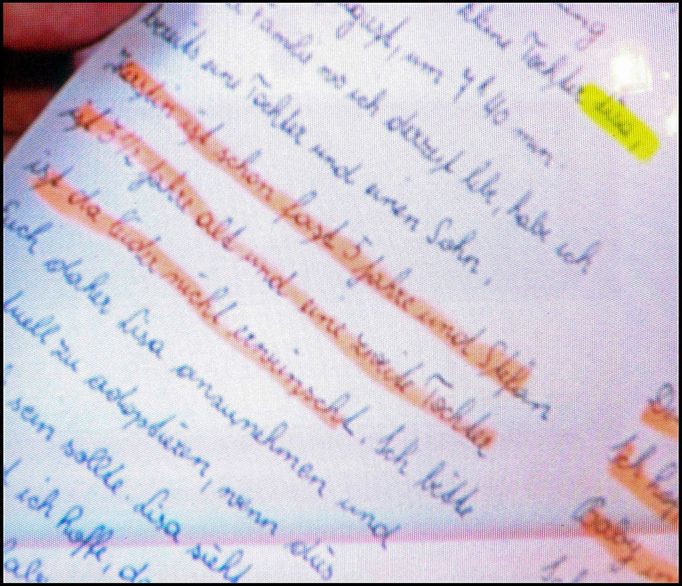 kleine Tochter Lisa,
um 4 h 40 min.
Familie wo ich derzeit lebe, habe ich
bereits eine Tochter und einen Sohn,
ist schon fast 5 Jahre und
ist 3 1/2 Jahre alt und eine zweite Tochter
ist da leider nicht erwünscht. Ich bitte
Euch daher Lisa anzunehmen und
zu adoptieren, wenn das
sein sollte. Lisa sieht
ich hoffe, da
Ich
Baby